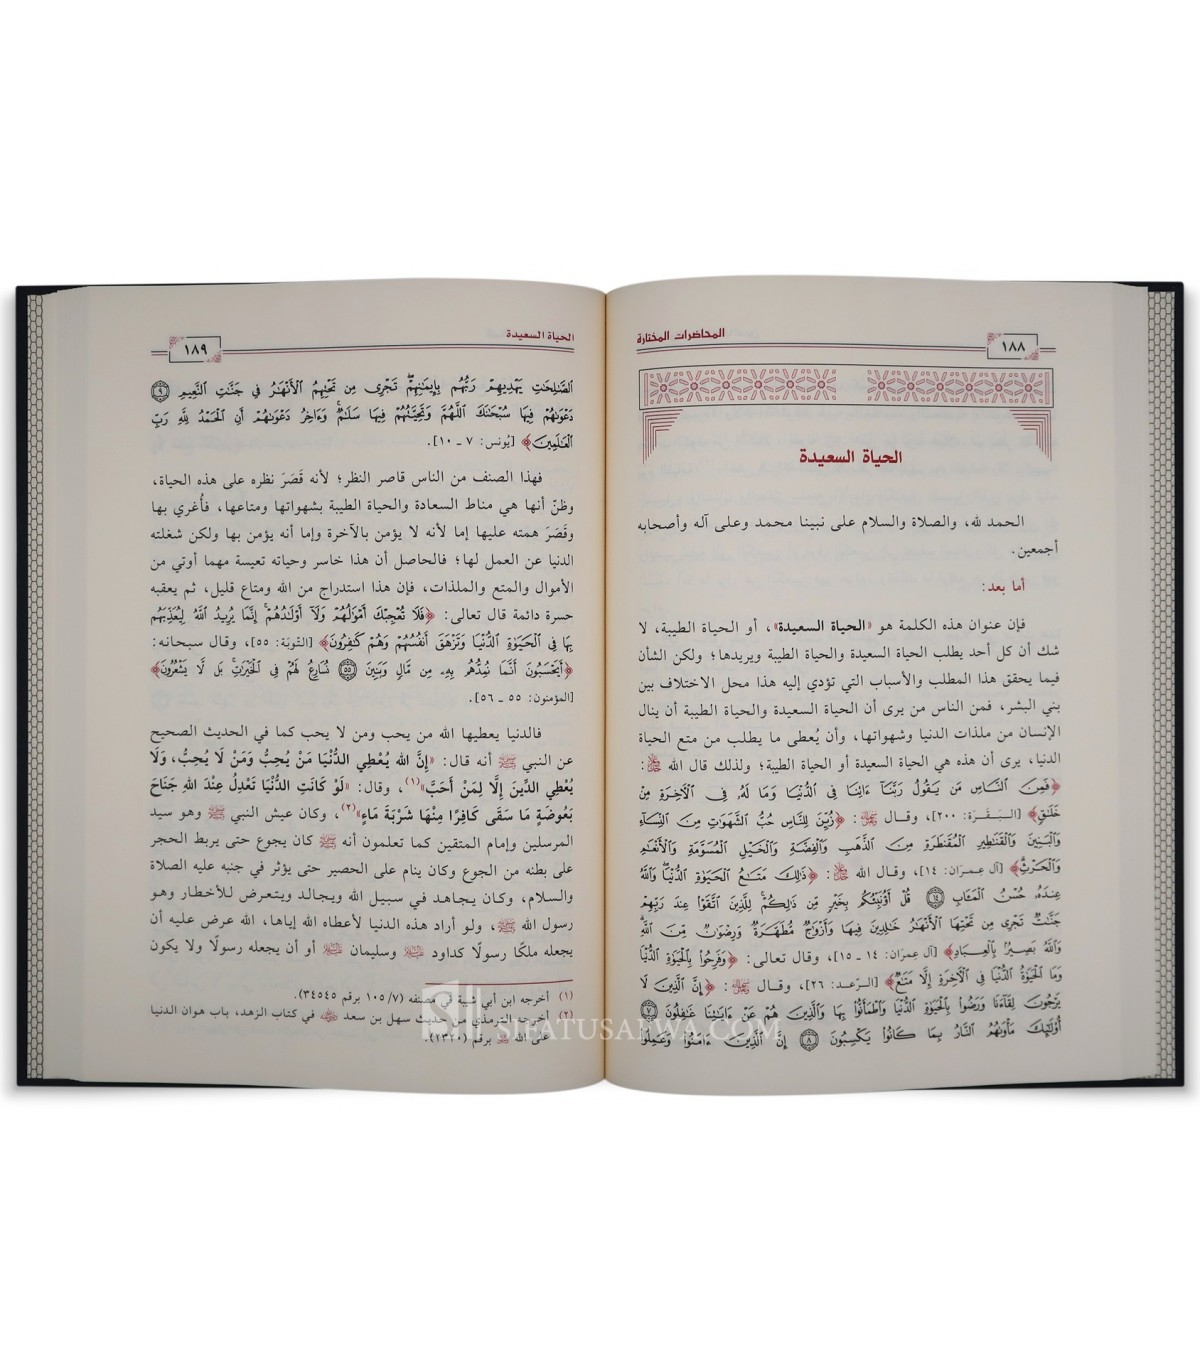 المحاضرات المختارة
١٨٨
الحياة السعيدة
الحمد لله، والصلاة والسلام على نبينا محمد وعلى آله وأصحابه
أجمعين.
أما بعد:
فإن عنوان هذه الكلمة هو «الحياة السعيدة»، أو الحياة الطيبة، لا
شك أن كل أحد يطلب الحياة السعيدة والحياة الطيبة ويريدها؛ ولكن الشأن
فيما يحقق هذا المطلب والأسباب التي تؤدي إليه هذا محل الاختلاف بين
بني البشر، فمن الناس من يرى أن الحياة السعيدة والحياة الطيبة أن ينال
الإنسان من ملذات الدنيا وشهواتها، وأن يُعطى ما يطلب من متع الحياة
الدنيا، يرى أن هذه هي الحياة السعيدة أو الحياة الطيبة؛ ولذلك قال الله ﷻ:
﴿فَمِنَ النَّاسِ مَن يَقُولُ رَبَّنَا ءَاتِنَا فِي الدُّنْيَا وَمَا لَهُ فِي الْآخِرَةِ مِنْ
خَلَاقٍ﴾ [البَقَرَة: ٢٠٠]، وقال ﷻ: ﴿زُيِّنَ لِلنَّاسِ حُبُّ الشَّهَوَاتِ مِنَ النِّسَاءِ
وَالْبَنِينَ وَالْقَنَاطِيرِ الْمُقَنطَرَةِ مِنَ الذَّهَبِ وَالْفِضَّةِ وَالْخَيْلِ الْمُسَوَّمَةِ وَالْأَنْعَامِ
وَالْحَرْثِ﴾ [آل عِمرَان: ١٤]، وقال الله ﷻ: ﴿ذَلِكَ مَتَاعُ الْحَيَوٰةِ الدُّنْيَا وَاللَّهُ
عِندَهُ حُسْنُ الْمَآبِ ١٤ قُلْ أَؤُنَبِّئُكُم بِخَيْرٍ مِّن ذَلِكُمْ لِلَّذِينَ اتَّقَوْا عِندَ رَبِّهِمْ
جَنَّاتٌ تَجْرِي مِن تَحْتِهَا الْأَنْهَارُ خَالِدِينَ فِيهَا وَأَزْوَاجٌ مُّطَهَّرَةٌ وَرِضْوَانٌ مِّنَ اللَّهِ
وَاللَّهُ بَصِيرٌ بِالْعِبَادِ﴾ [آل عِمرَان: ١٤ ـ ١٥]، وقال تعالى: ﴿وَفَرِحُوا بِالْحَيَوٰةِ الدُّنْيَا
وَمَا الْحَيَوٰةُ الدُّنْيَا فِي الْآخِرَةِ إِلَّا مَتَاعٌ﴾ [الرّعد: ٢٦]، وقال ﷻ: ﴿إِنَّ الَّذِينَ لَا
يَرْجُونَ لِقَاءَنَا وَرَضُوا بِالْحَيَوٰةِ الدُّنْيَا وَاطْمَأَنُّوا بِهَا وَالَّذِينَ هُمْ عَنْ ءَايَاتِنَا غَافِلُونَ ٧
أُولَئِكَ مَأْوَاهُمُ النَّارُ بِمَا كَانُوا يَكْسِبُونَ ٨ إِنَّ الَّذِينَ ءَامَنُوا وَعَمِلُوا
الحياة السعيدة
١٨٩
الصَّالِحَاتِ يَهْدِيهِمْ رَبُّهُم بِإِيمَانِهِمْ تَجْرِي مِن تَحْتِهِمُ الْأَنْهَارُ فِي جَنَّاتِ النَّعِيمِ ٩
دَعْوَاهُمْ فِيهَا سُبْحَانَكَ اللَّهُمَّ وَتَحِيَّتُهُمْ فِيهَا سَلَامٌ وَءَاخِرُ دَعْوَاهُمْ أَنِ الْحَمْدُ لِلَّهِ رَبِّ
الْعَالَمِينَ﴾ [يُونس: ٧ ـ ١٠].
فهذا الصنف من الناس قاصر النظر؛ لأنه قَصَرَ نظره على هذه الحياة،
وظنّ أنها هي مناط السعادة والحياة الطيبة بشهواتها ومتاعها، فأُغري بها
وقَصَرَ همته عليها إما لأنه لا يؤمن بالآخرة وإما أنه يؤمن بها ولكن شغلته
الدنيا عن العمل لها؛ فالحاصل أن هذا خاسر وحياته تعيسة مهما أوتي من
الأموال والمتع والملذات، فإن هذا استدراج من الله ومتاع قليل، ثم يعقبه
حسرة دائمة قال تعالى: ﴿فَلَا تُعْجِبْكَ أَمْوَالُهُمْ وَلَا أَوْلَادُهُمْ إِنَّمَا يُرِيدُ اللَّهُ لِيُعَذِّبَهُم
بِهَا فِي الْحَيَوٰةِ الدُّنْيَا وَتَزْهَقَ أَنفُسُهُمْ وَهُمْ كَافِرُونَ﴾ [التّوبَة: ٥٥]، وقال سبحانه:
﴿أَيَحْسَبُونَ أَنَّمَا نُمِدُّهُم بِهِ مِن مَّالٍ وَبَنِينَ ٥٥ نُسَارِعُ لَهُمْ فِي الْخَيْرَاتِ بَل لَّا يَشْعُرُونَ﴾
[المؤمنون: ٥٥ ـ ٥٦].
فالدنيا يعطيها الله من يحب ومن لا يحب كما في الحديث الصحيح
عن النبي ﷺ أنه قال: «إِنَّ الله يُعْطِي الدُّنْيَا مَنْ يُحِبُّ وَمَنْ لَا يُحِبُّ، وَلَا
يُعْطِي الدِّينَ إِلَّا لِمَنْ أَحَبَّ»(١)، وقال: «لَوْ كَانَتِ الدُّنْيَا تَعْدِلُ عِنْدَ اللهِ جَنَاحَ
بَعُوضَةٍ مَا سَقَى كَافِرًا مِنْهَا شَرْبَةَ مَاءٍ»(٢)، وكان عيش النبي ﷺ وهو سيد
المرسلين وإمام المتقين كما تعلمون أنه ﷺ كان يجوع حتى يربط الحجر
على بطنه من الجوع وكان ينام على الحصير حتى يؤثر في جنبه عليه الصلاة
والسلام، وكان يجاهد في سبيل الله ويجالد ويتعرض للأخطار وهو
رسول الله ﷺ، ولو أراد هذه الدنيا لأعطاه الله إياها، الله عرض عليه أن
يجعله ملكًا رسولًا كداود وسليمان أو أن يجعله رسولًا ولا يكون
(١) أخرجه ابن أبي شيبة في مصنفه (٧/ ١٠٥ برقم ٣٤٥٤٥).
(٢) أخرجه الترمذي من حديث سهل بن سعد في كتاب الزهد، باب هوان الدنيا
على الله برقم (١٣٢٠).
SIFATUSAFWA.COM